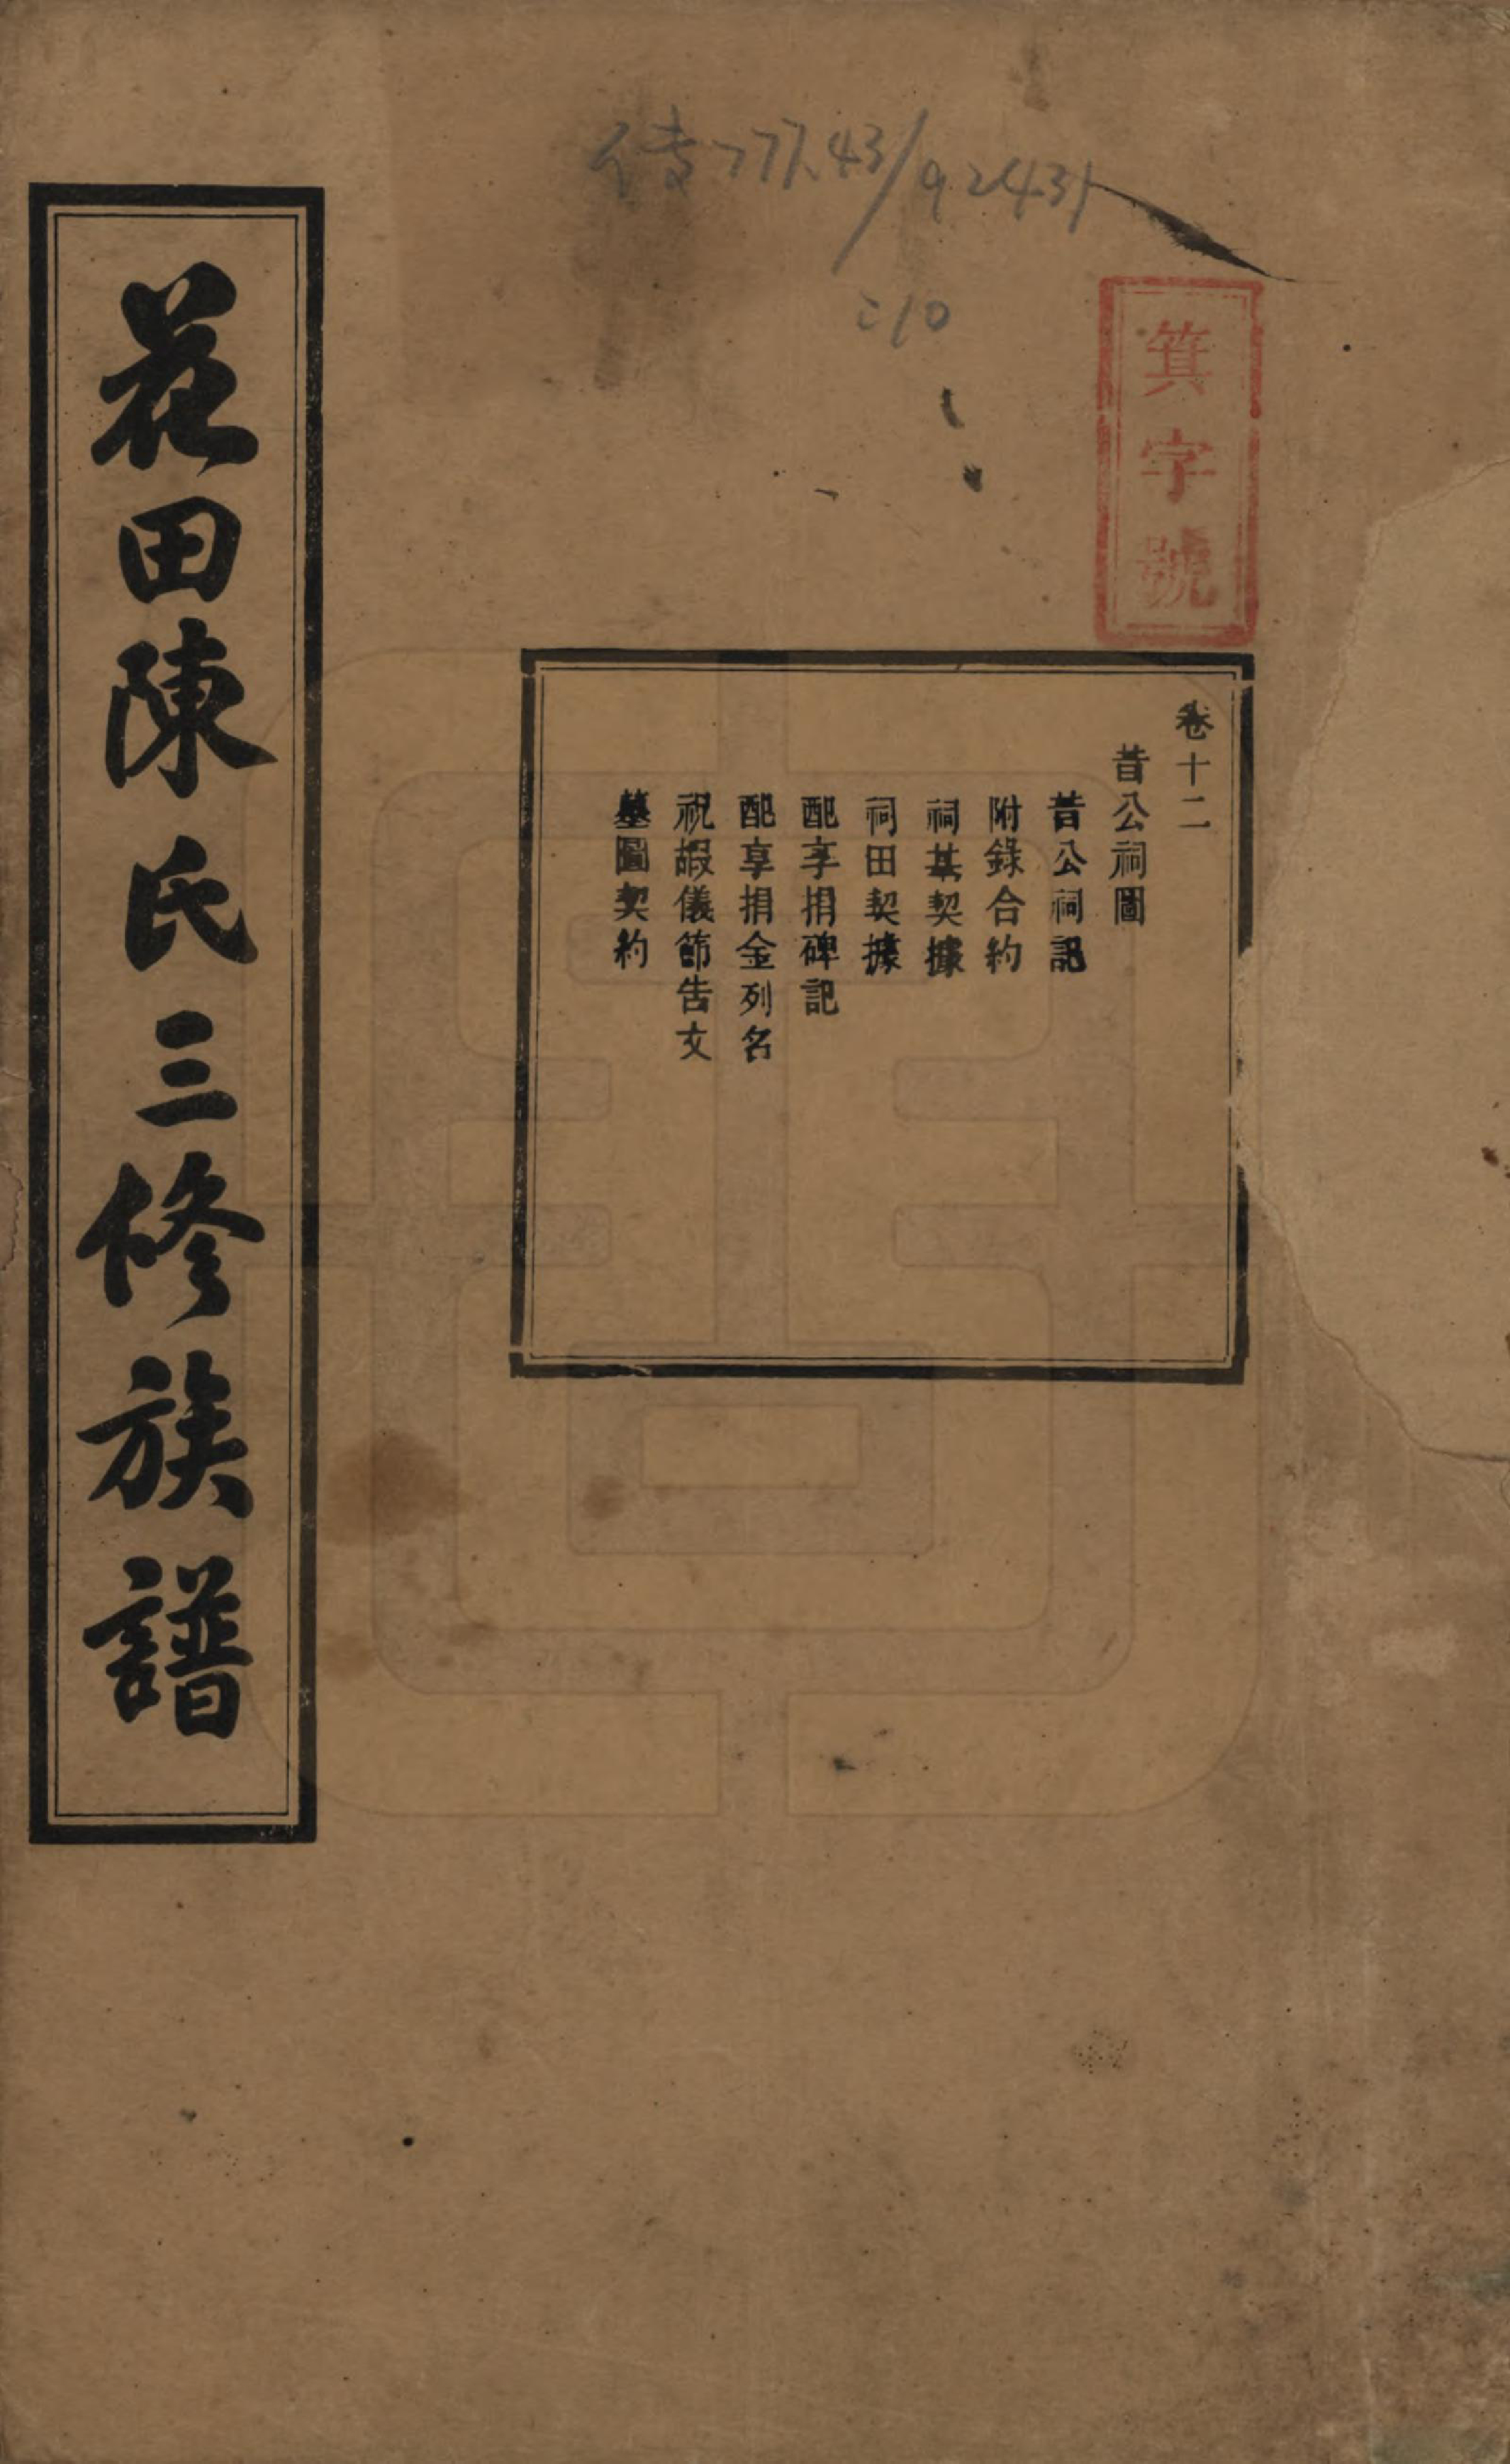 傳777.43/92431
:10
箕字號
卷十二
昔公祠圖
昔公祠記
附錄合約
祠基契據
祠田契據
配享捐碑記
配享捐金列名
祝嘏儀節告文
墓圖契約
花田陳氏三修族譜